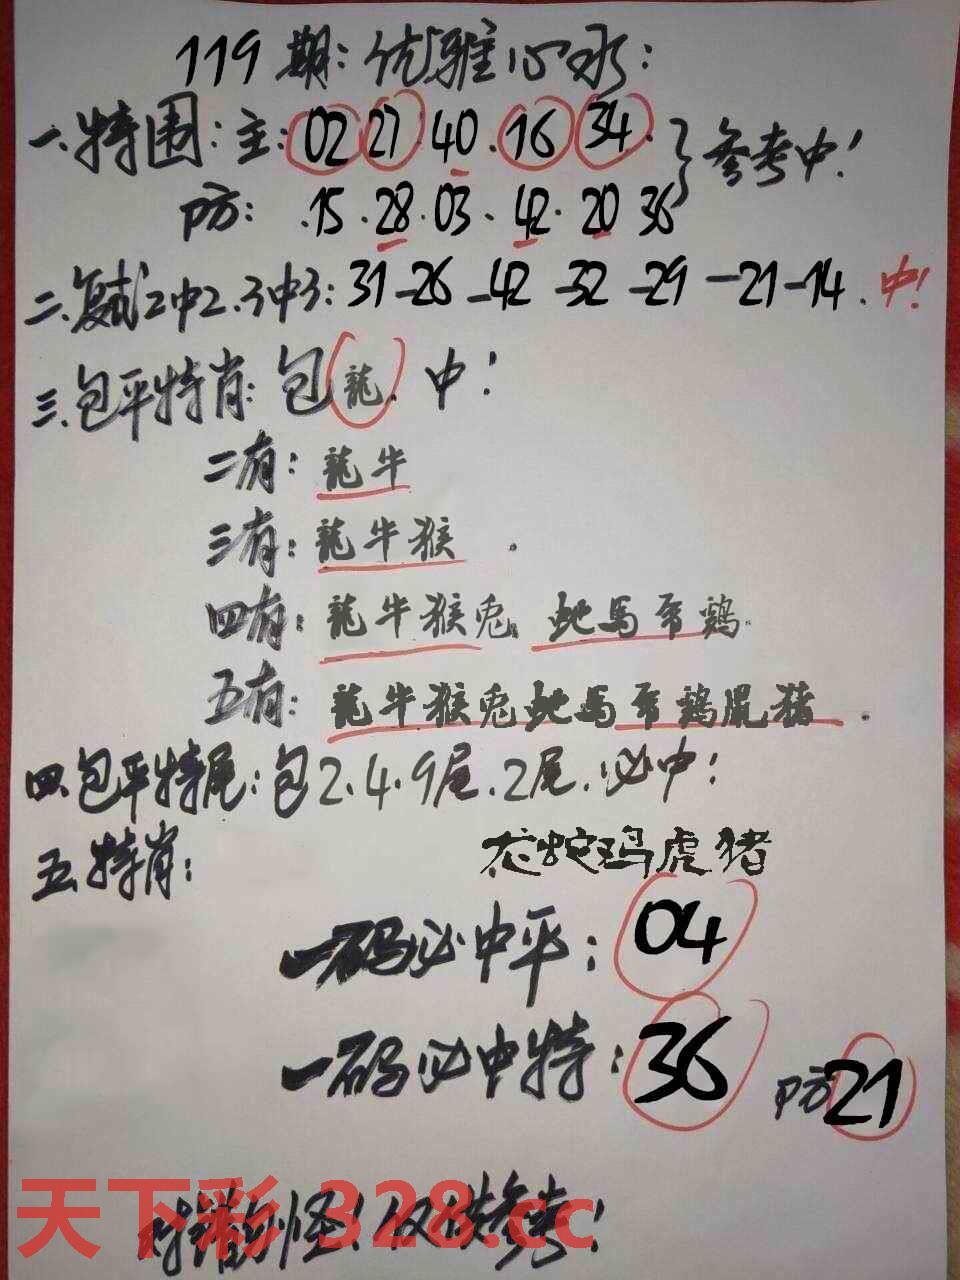 119期:优雅心水:
一.特围:主:02 27 40.16 34. 参考中!
防: .15.28.03.42.20 36
二.复式2中2.3中3:31-26-42-32-29-21-14.中!
三.包平特肖:包龍.中!
二有:龍牛
三有:龍牛猴.
四有:龍牛猴兎.蛇马羊鶏.
五有:龍牛猴兎蛇马羊鶏鼠猪.
四.包平特尾:包2.4.9尾.2尾.必中!
五.特肖: 龙蛇马虎猪
一码必中平:04
一码必中特:36 防21
对错勿怪!仅供参考!
天下彩 328.cc